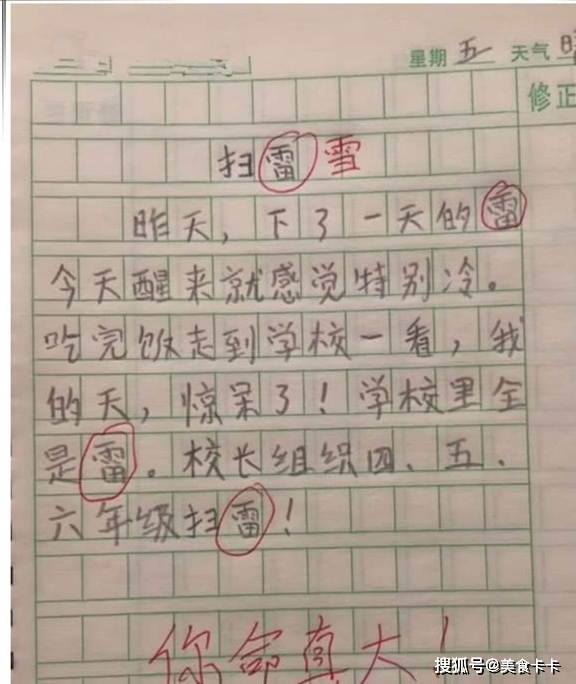 星期 五 天气 晴
修正
扫雷 雪
昨天，下了一天的雷
今天醒来就感觉特别冷。
吃完饭走到学校一看，我
的天，惊呆了！学校里全
是雷。校长组织四、五、
六年级扫雷！
你命真大！
搜狐号@美食卡卡